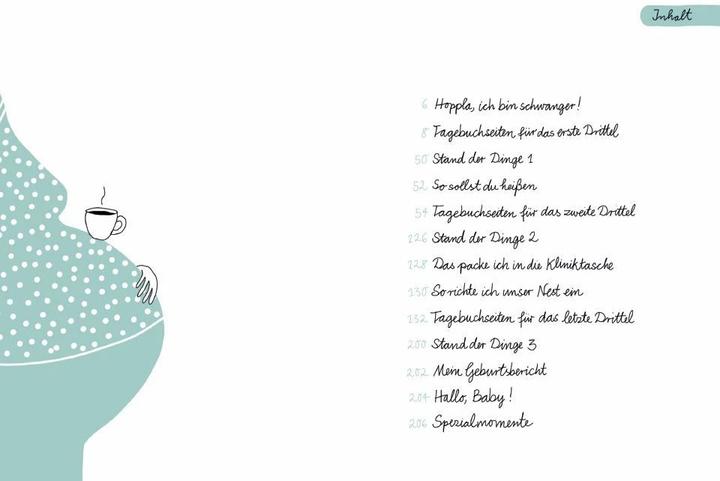 Inhalt
6 Hoppla, ich bin schwanger!
8 Tagebuchseiten für das erste Drittel
50 Stand der Dinge 1
52 So sollst du heißen
54 Tagebuchseiten für das zweite Drittel
126 Stand der Dinge 2
128 Das packe ich in die Kliniktasche
130 So richte ich unser Nest ein
132 Tagebuchseiten für das letzte Drittel
200 Stand der Dinge 3
202 Mein Geburtsbericht
204 Hallo, Baby!
206 Spezialmomente